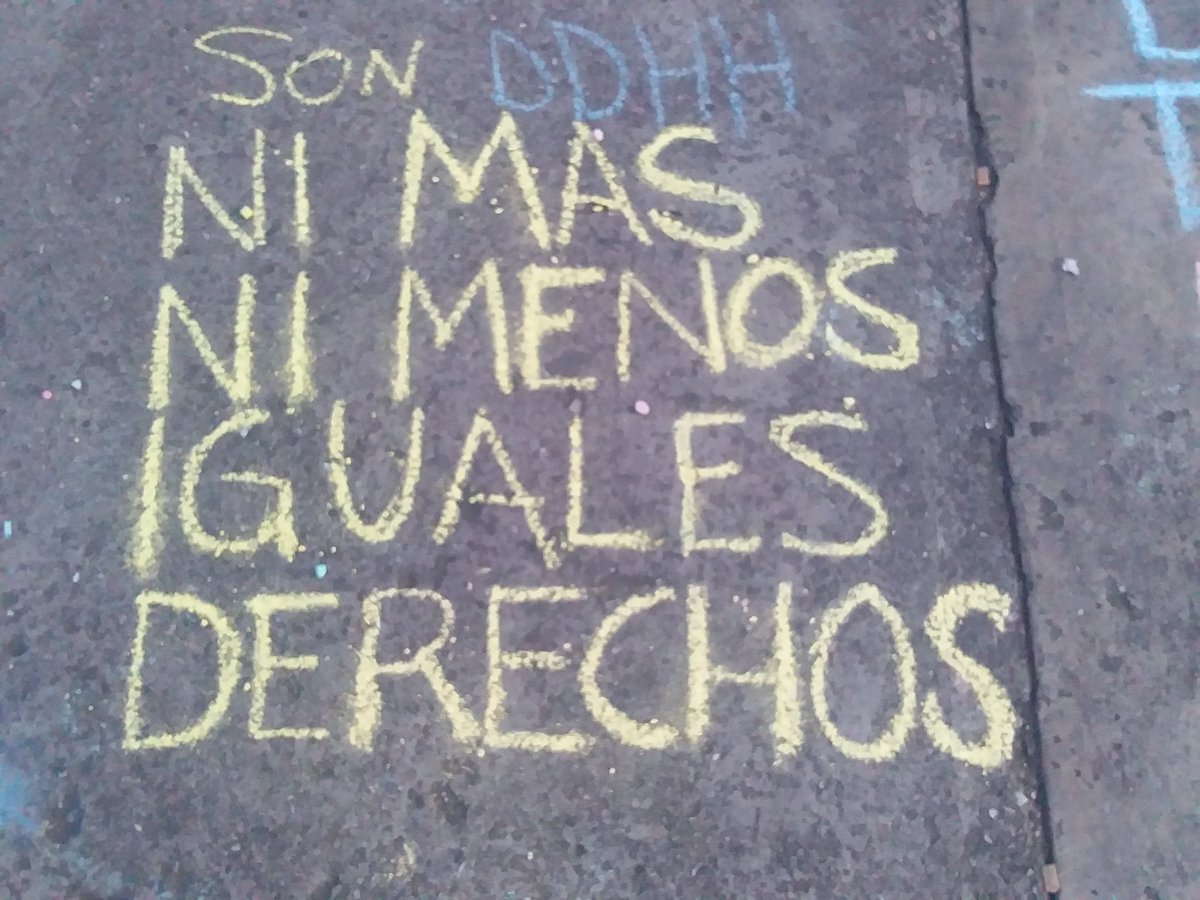 SON DDHH
NI MAS
NI MENOS
IGUALES
DERECHOS